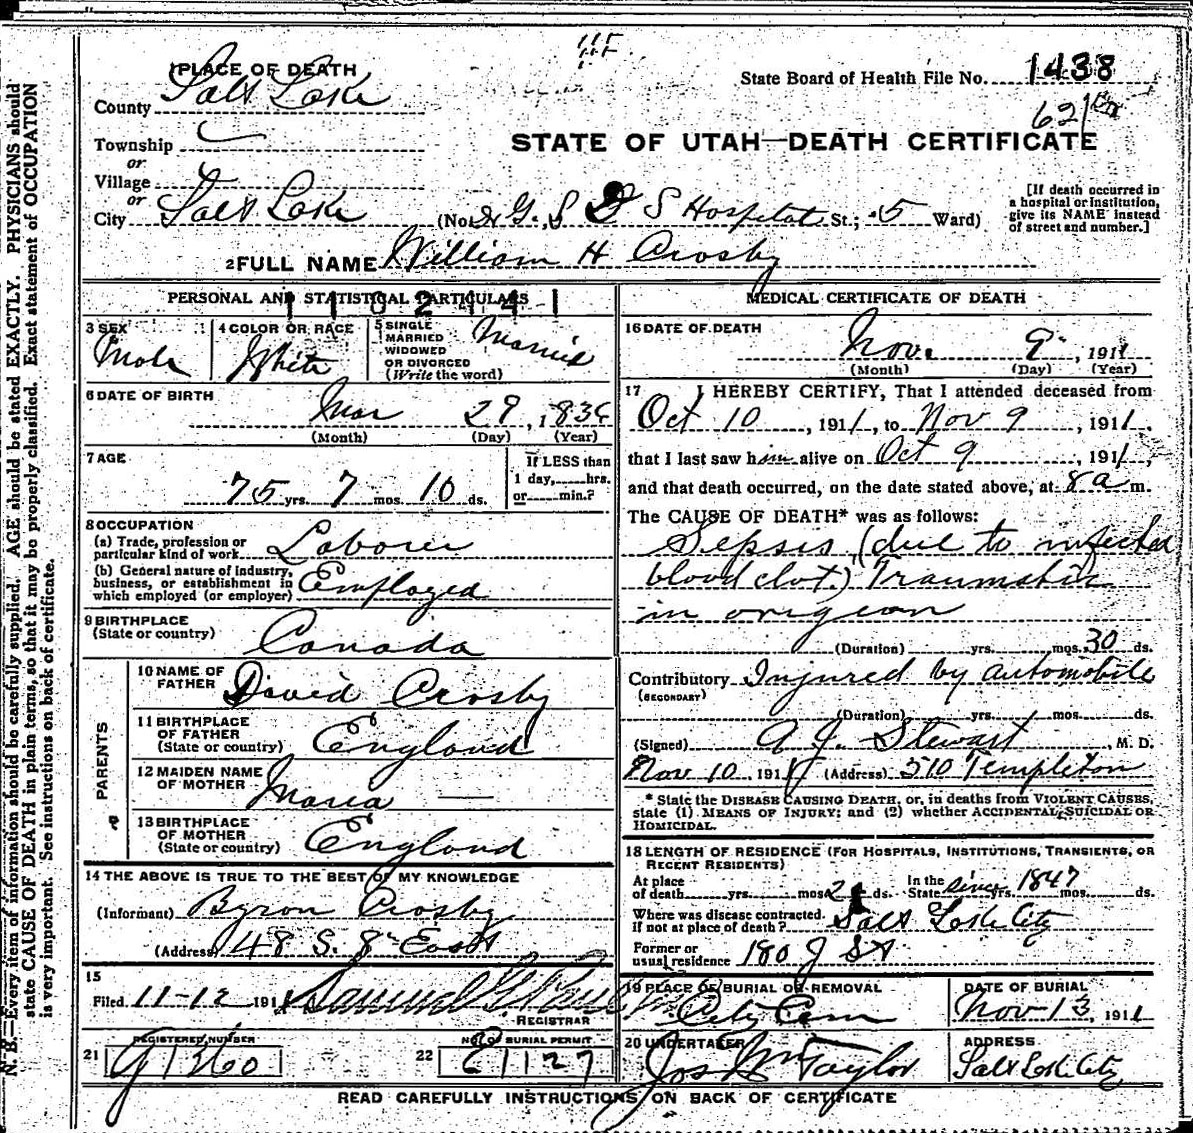 N. B.—Every item of information should be carefully supplied. AGE should be stated EXACTLY. PHYSICIANS should
state CAUSE OF DEATH in plain terms, so that it may be properly classified. Exact statement of OCCUPATION
is very important. See instructions on back of certificate.
1 PLACE OF DEATH
State Board of Health File No. 1438
County Salt Lake
62
Township
STATE OF UTAH—DEATH CERTIFICATE
or
Village
or
City Salt Lake (No. Dr G. S D S Hospital St.; 5 Ward)
[If death occurred in
a hospital or institution,
give its NAME instead
of street and number.]
2 FULL NAME William H Crosby
PERSONAL AND STATISTICAL PARTICULARS
1 1 0 2 4 4 1
3 SEX Male
4 COLOR OR RACE White
5 SINGLE
MARRIED
WIDOWED
OR DIVORCED
(Write the word) Married
6 DATE OF BIRTH Mar 29, 1836
(Month) (Day) (Year)
7 AGE 75 yrs. 7 mos. 10 ds.
If LESS than
1 day, hrs.
or min.?
8 OCCUPATION
(a) Trade, profession or
particular kind of work Laborer
(b) General nature of industry,
business, or establishment in
which employed (or employer) Employed
9 BIRTHPLACE
(State or country) Canada
PARENTS
10 NAME OF
FATHER David Crosby
11 BIRTHPLACE
OF FATHER
(State or country) England
12 MAIDEN NAME
OF MOTHER Maria —
13 BIRTHPLACE
OF MOTHER
(State or country) England
14 THE ABOVE IS TRUE TO THE BEST OF MY KNOWLEDGE
(Informant) Byron Crosby
(Address) 48 S. 8th East
15
Filed 11-12 1911 Samuel G.
REGISTRAR
21 REGISTERED NUMBER
22 NO. OF BURIAL PERMIT
E1127
MEDICAL CERTIFICATE OF DEATH
16 DATE OF DEATH
Nov. 9, 1911
(Month) (Day) (Year)
17 I HEREBY CERTIFY, That I attended deceased from
Oct 10, 1911, to Nov 9, 1911,
that I last saw him alive on Oct 9, 1911,
and that death occurred, on the date stated above, at 8 a m.
The CAUSE OF DEATH* was as follows:
Sepsis (due to infected
blood clot.) Traumatic
in origin
(Duration) yrs. mos. 30 ds.
Contributory Injured by automobile
(SECONDARY)
(Duration) yrs. mos. ds.
(Signed) A J. Stewart, M. D.
Nov 10 1911 (Address) 510 Templeton
* State the DISEASE CAUSING DEATH, or, in deaths from VIOLENT CAUSES,
state (1) MEANS OF INJURY; and (2) whether ACCIDENTAL, SUICIDAL OR
HOMICIDAL.
18 LENGTH OF RESIDENCE (FOR HOSPITALS, INSTITUTIONS, TRANSIENTS, OR
RECENT RESIDENTS)
At place
of death yrs. mos. ds.
In the
State since 1847 yrs. mos. ds.
Where was disease contracted.
If not at place of death? Salt Lake City
Former or
usual residence 180 J St
19 PLACE OF BURIAL OR REMOVAL
City Cem
DATE OF BURIAL
Nov 13, 1911
20 UNDERTAKER
Jos Wm Taylor
ADDRESS
Salt Lake City
READ CAREFULLY INSTRUCTIONS ON BACK OF CERTIFICATE